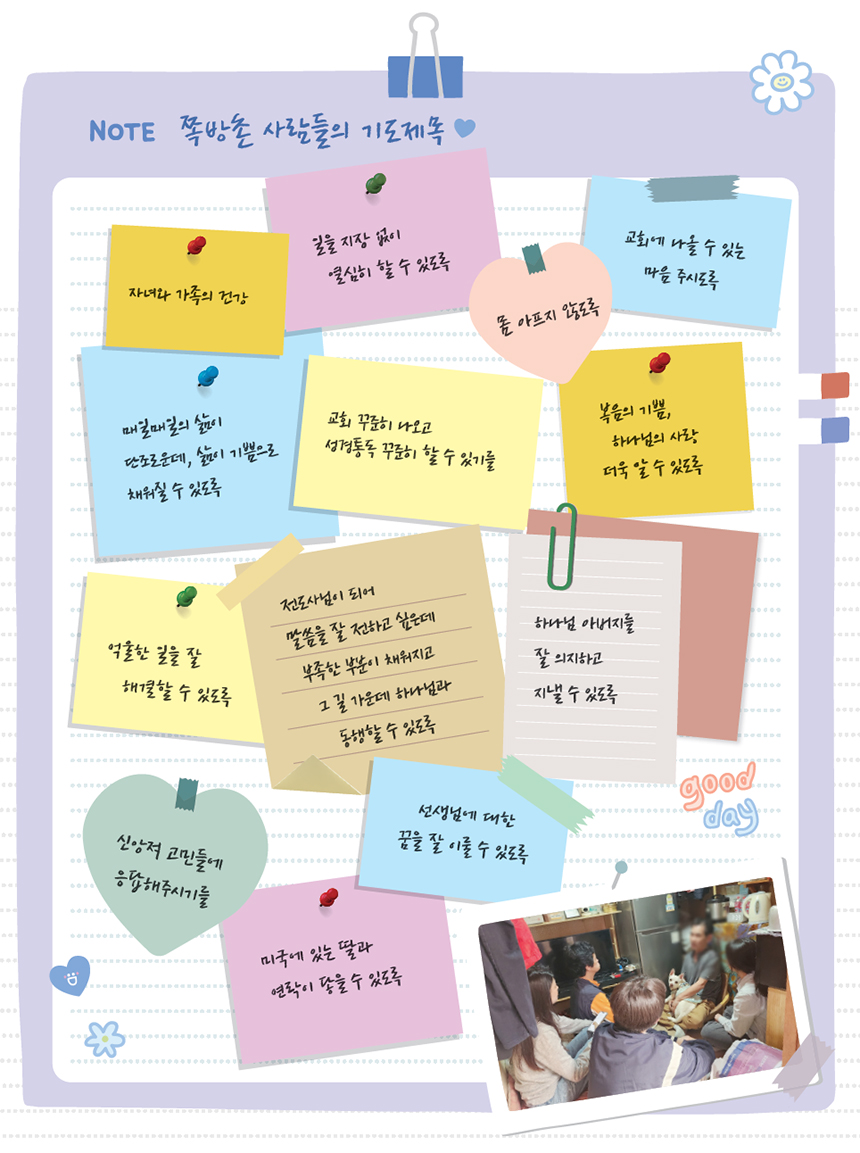 NOTE 쪽방촌 사람들의 기도제목
일을 지장 없이
열심히 할 수 있도록
교회에 나올 수 있는
마음 주시도록
자녀와 가족의 건강
몸 아프지 않도록
매일매일의 삶이
단조로운데, 삶이 기쁨으로
채워질 수 있도록
교회 꾸준히 나오고
성경통독 꾸준히 할 수 있기를
복음의 기쁨,
하나님의 사랑
더욱 알 수 있도록
억울한 일을 잘
해결할 수 있도록
전도사님이 되어
말씀을 잘 전하고 싶은데
부족한 부분이 채워지고
그 길 가운데 하나님과
동행할 수 있도록
하나님 아버지를
잘 의지하고
지낼 수 있도록
good
day
선생님에 대한
꿈을 잘 이룰 수 있도록
신앙적 고민들에
응답해주시기를
미국에 있는 딸과
연락이 닿을 수 있도록